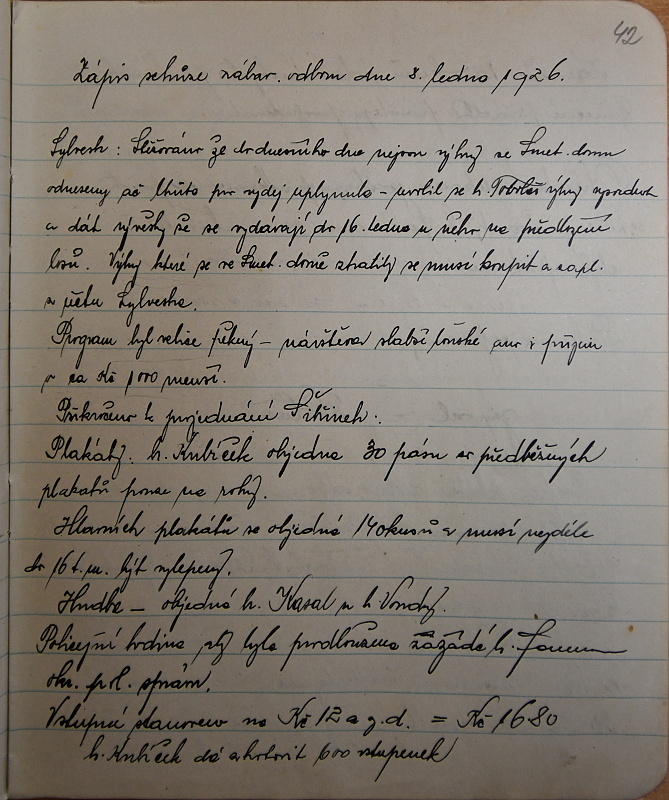 42
Zápis schůze zábav. odboru dne 8. ledna 1926.
Sylvestr: Zjišťováno že do dnešního dne nejsou výhry ve Smet. domu
odneseny ač lhůta pro výdej uplynula – uvolil se h. výhry
a dát vývěsky že se vydávají do 16. ledna u něho na předložení
losů. Výhry které se ve Smet. domě ztratily se musí koupit a zapl.
z účtu Sylvestra.
Program byl velice pěkný – návštěva slabší loňské ano i příjem
o ca Kč 1000 menší.
Přikročeno k projednání Šibřinek.
Plakáty. h. Kubíček objedna 30 pásů co předběžných
plakatů pouze na rohy.
Hlavních plakátů se objedná 140 kusů a musí nejdéle
do 16 t.m. být vylepeny.
Hudba – objedná h. Kasal u h. Vondry.
Policejní hodina, aby byla prodloužena zažádá h.
okr. pol. správu.
Vstupné stanoveno na Kč 12 a g.d. = Kč 16.80
h. Kubíček dá zhotovit 600 vstupenek